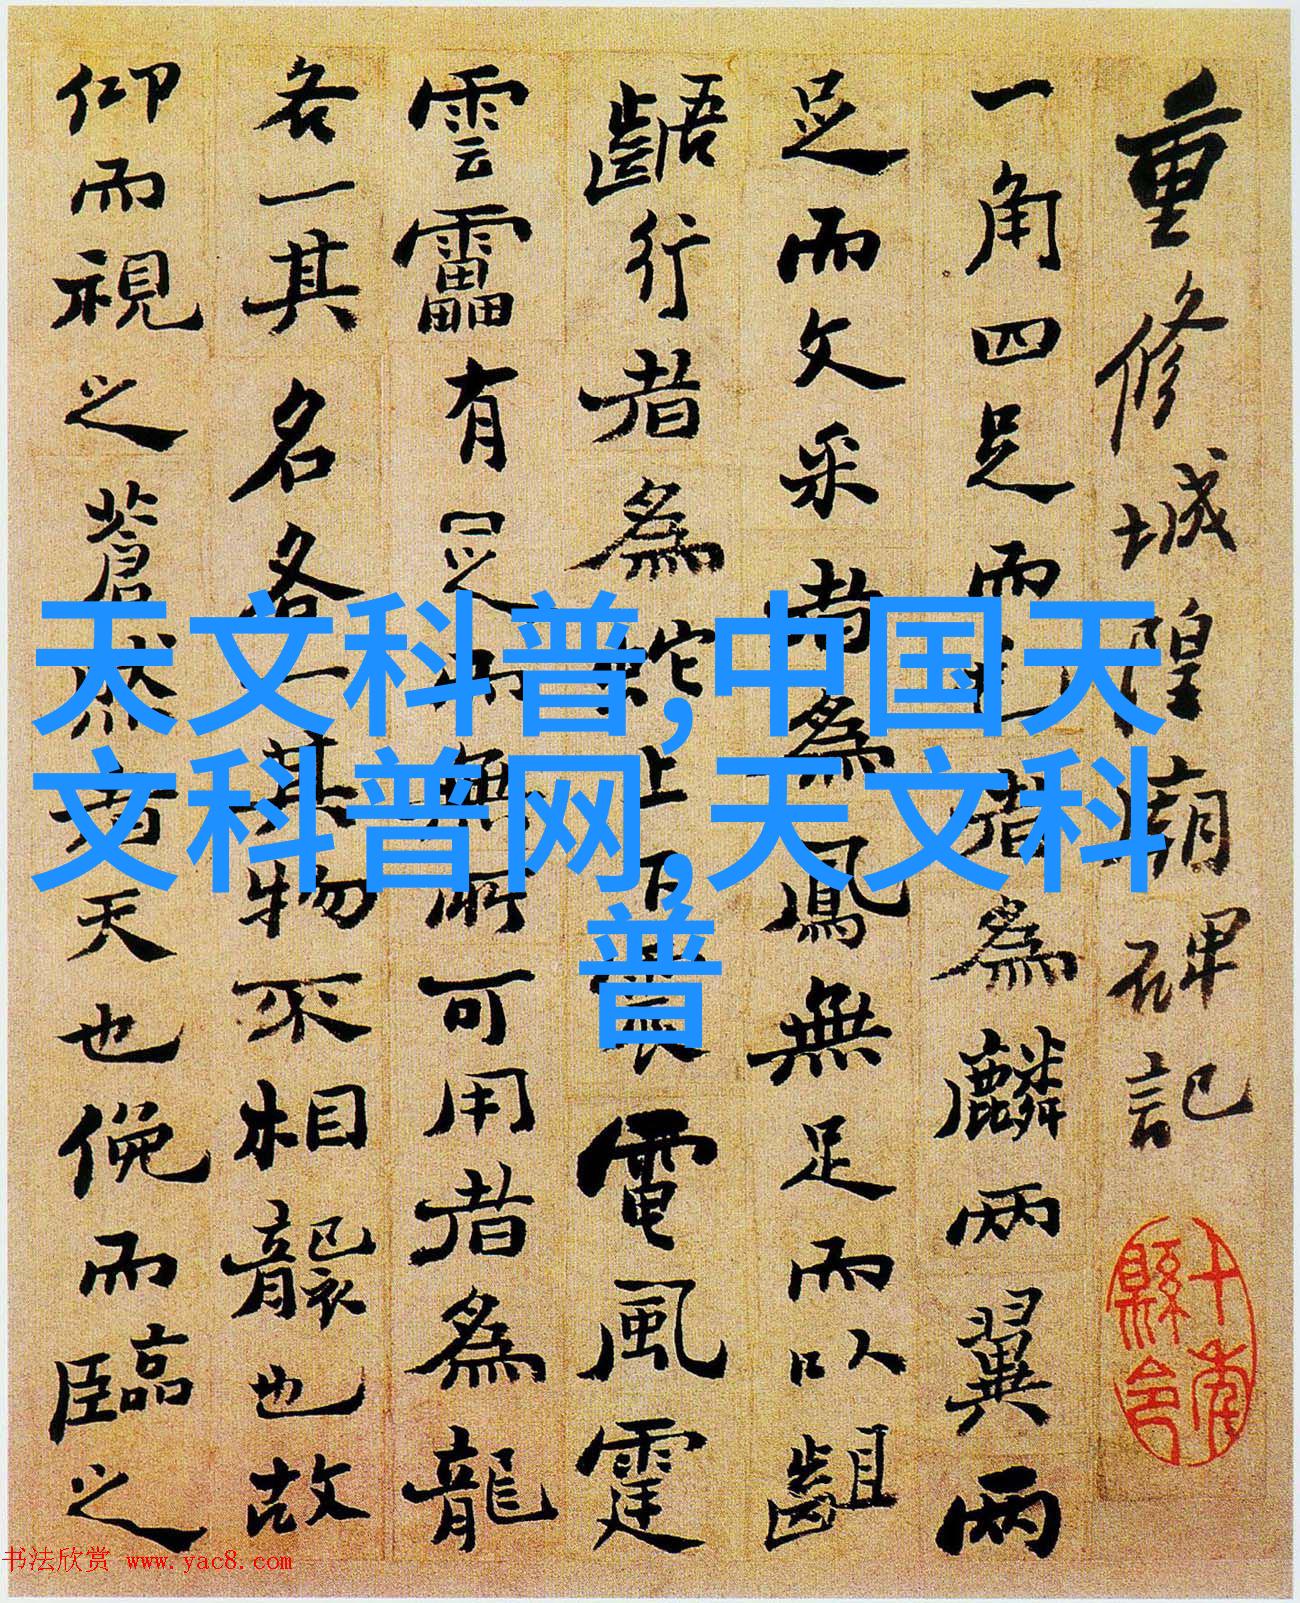 重修城隍廟碑記
一角四足而毛者為麟兩翼兩
足而文采者為鳳無足而以齟
齬行者為蛇上下震電風霆
雲靁有足而無所可用者為龍
各一其名各一其物不相襲也故
仰而視之蒼然者天也俛而臨之
天文科普,中国天
文科普网,天文科
普
书法欣赏 www.yac8.com